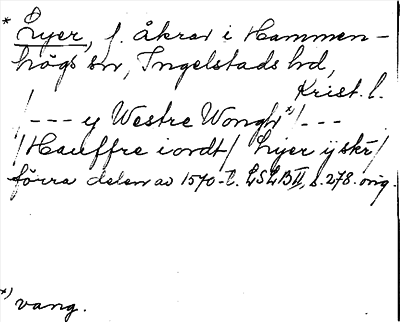 * Lyer, f. åkrar i Hammen-
högs sn, Ingelstads hd,
Krist. l.
/--- y Westre Wongh x)/---
/Hauffre iordt/ Lyer ij skr/
förra delen av 1570-t. LSLBII, s. 278. orig.
x) vang.